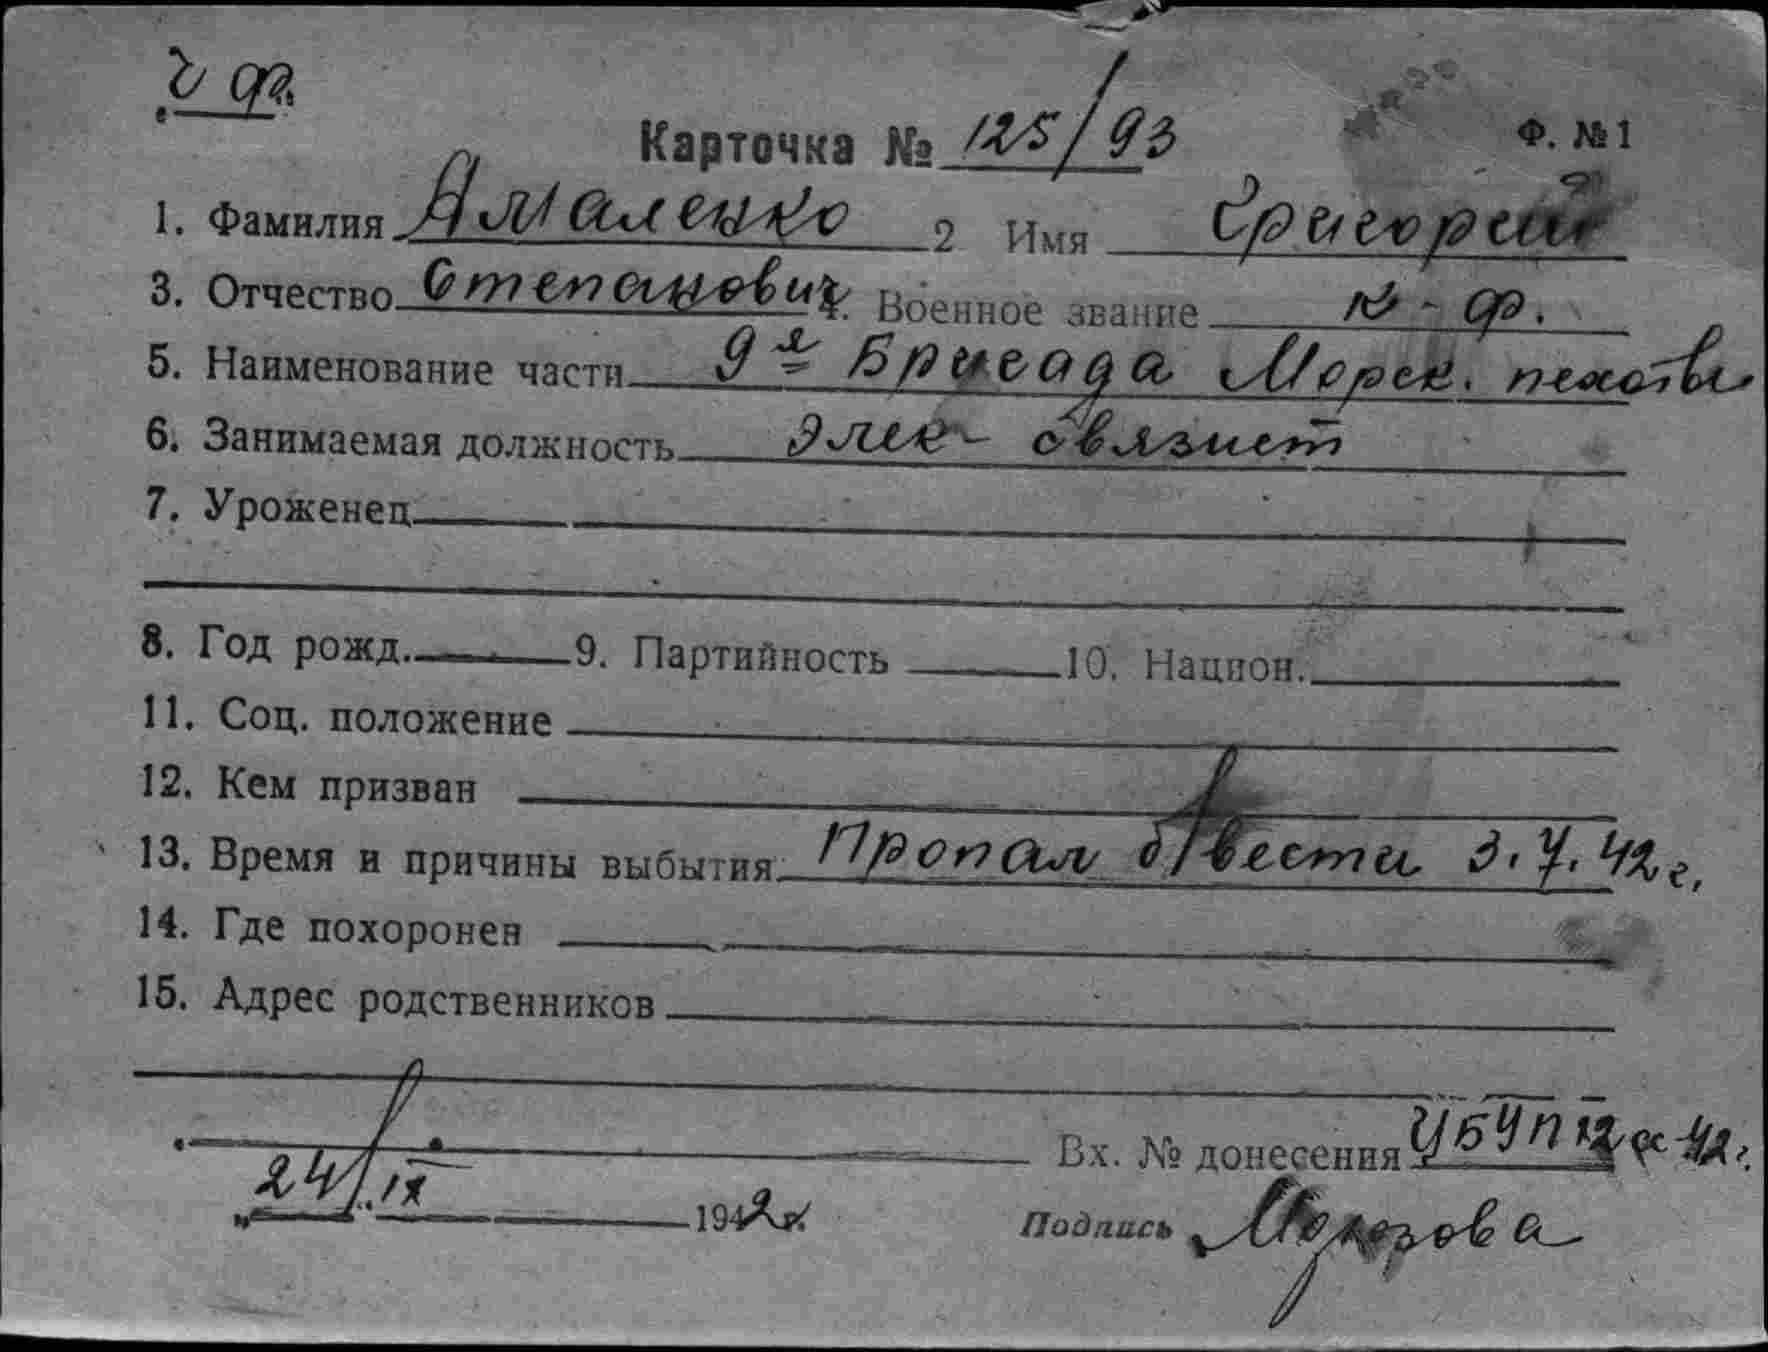 Карточка № 125/93
Ф. №1
1. Фамилия Амаленко 2 Имя Григорий
3. Отчество Степанович 4. Военное звание к-ф.
5. Наименование части 9я Бригада Морск. пехоты
6. Занимаемая должность Элек- связист
7. Уроженец
8. Год рожд. 9. Партийность 10. Национ.
11. Соц. положение
12. Кем призван
13. Время и причины выбытия Пропал б/вести 3.7.42 г.
14. Где похоронен
15. Адрес родственников
Вх. № донесения УБЧП
24/IX 1942 г.
Подпись Морозова